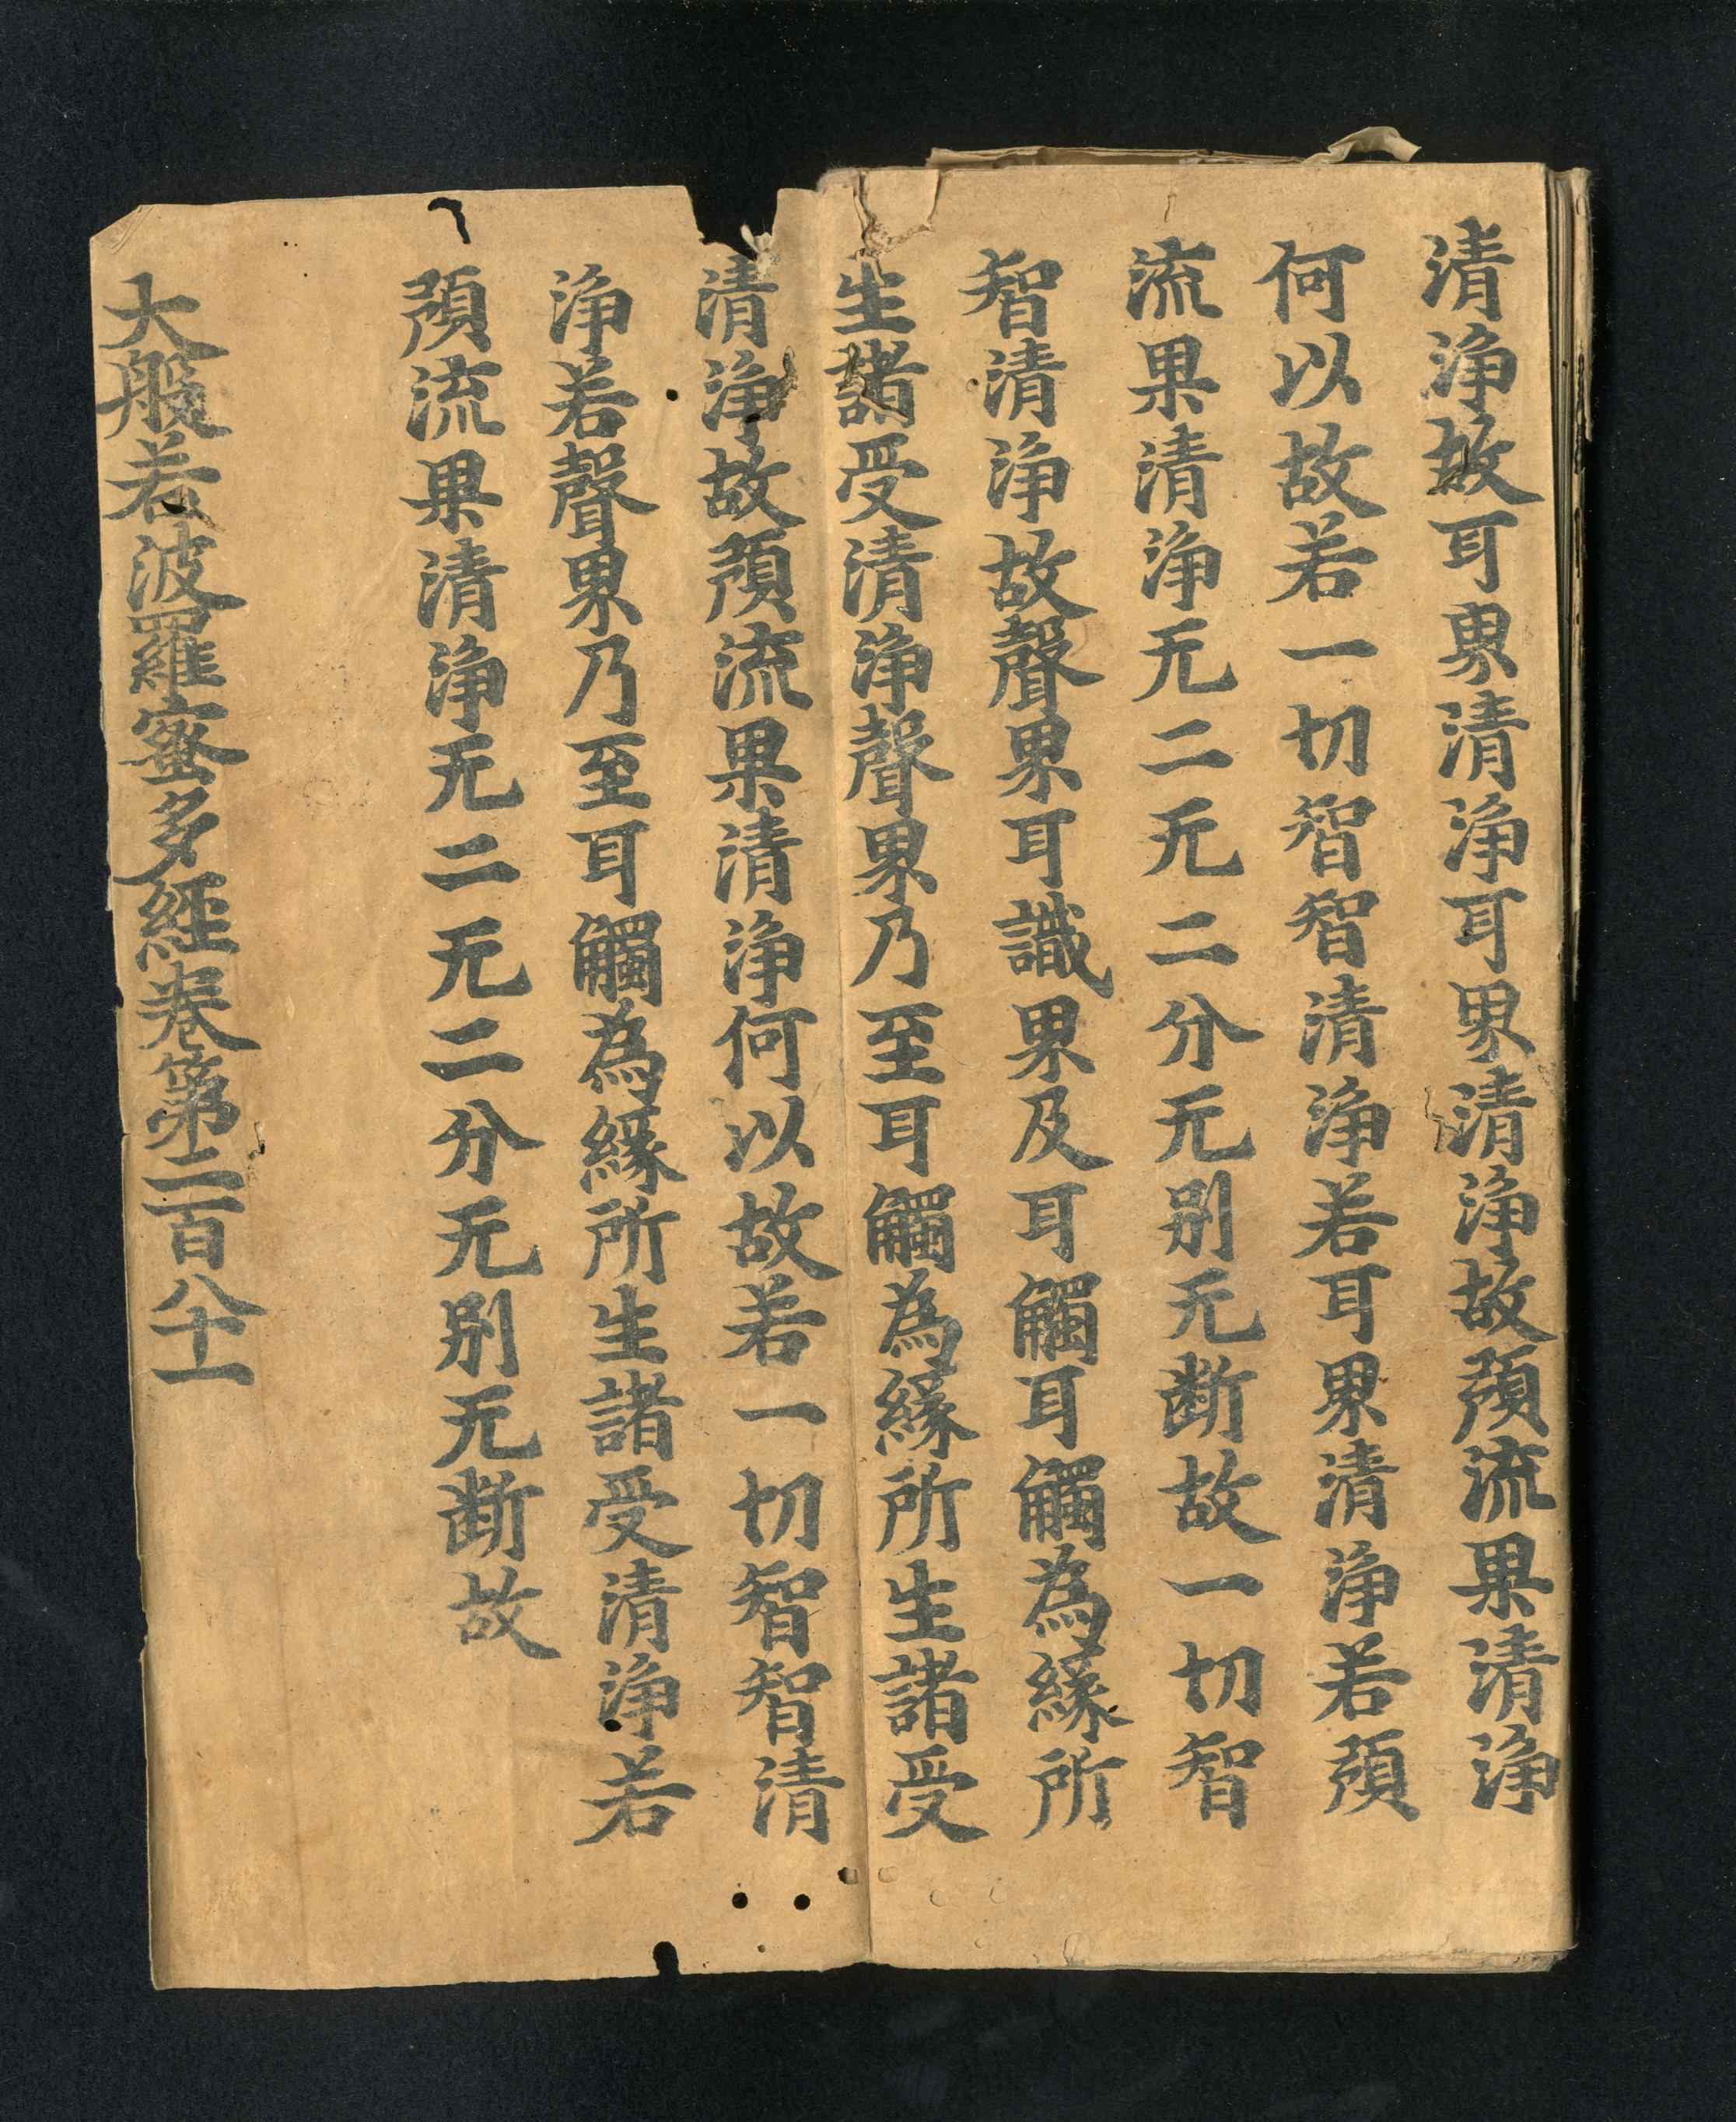 清淨故耳界清淨耳界清淨故預流果清淨
何以故若一切智智清淨若耳界清淨若預
流果清淨无二无二分无别无断故一切智
智清淨故聲界耳識界及耳觸耳觸為緣所
生諸受清淨聲界乃至耳觸為緣所生諸受
清淨故預流果清淨何以故若一切智智清
淨若聲界乃至耳觸為緣所生諸受清淨若
預流果清淨无二无二分无别无断故
大般若波羅蜜多經卷第二百八十一